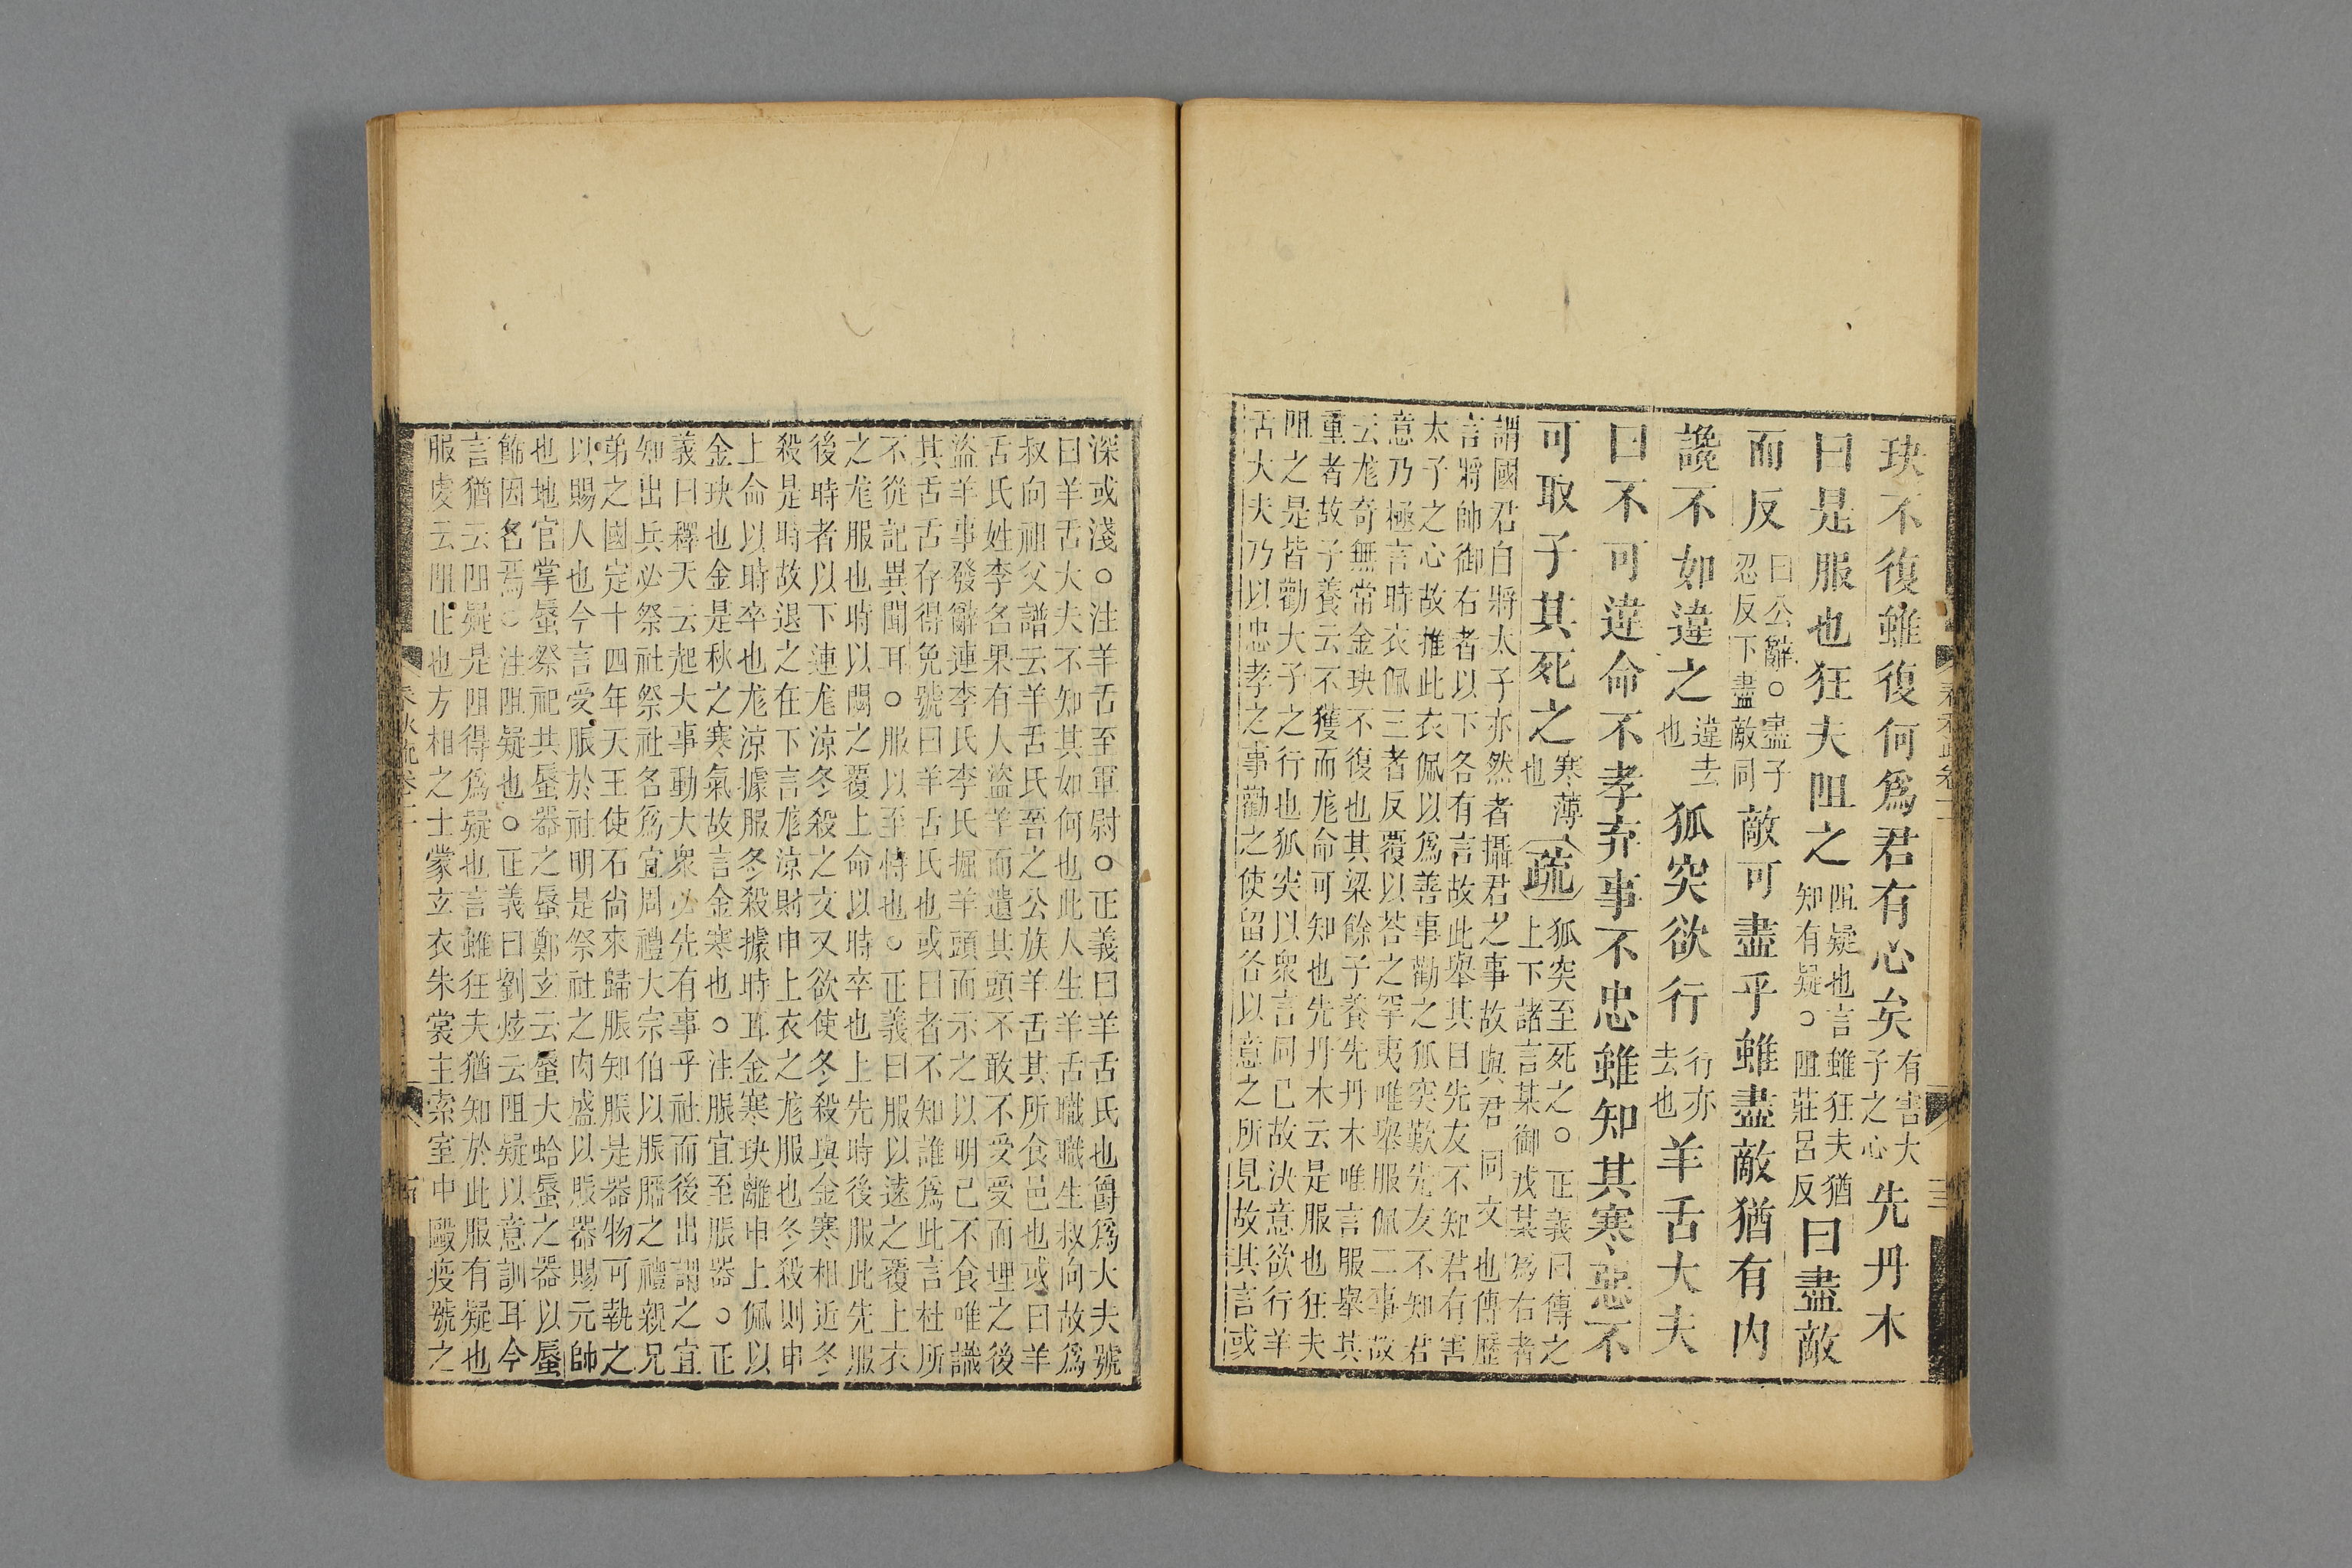 玦不復雖復何爲君有心矣有害大子之心先丹木
曰是服也狂夫阻之阻疑也言雖狂夫猶知有疑○阻莊呂反曰盡敵
而反曰公辭○盡子忍反下盡敵同敵可盡乎雖盡敵猶有内
讒不如違之違去也狐突欲行行亦去也羊舌大夫
曰不可違命不孝弃事不忠雖知其寒惡不
可取子其死之寒薄也疏狐突至死之○正義曰傳之上下諸言某御戎某爲右者
謂國君自將太子亦然者攝君之事故與君同文也傳歷
言將帥御右者以下各有言故此舉其目先友不知君有害
太子之心故推此衣佩以爲善事勸之狐突歎先友不知君
意乃極言時衣佩三者反覆以荅之罕夷唯舉服佩二事故
云尨奇無常金玦不復也其梁餘子養先丹木唯言服舉其
重者故子養云不獲而尨命可知也先丹木云是服也狂夫
阻之是皆勸大子之行也狐突以衆言同已故決意欲行羊
舌大夫乃以忠孝之事勸之使留各以意之所見故其言或
深或淺○注羊舌至軍尉○正義曰羊舌氏也爵爲大夫號
曰羊舌大夫不知其如何也此人生羊舌職職生叔向故爲
叔向祖父譜云羊舌氏晉之公族羊舌其所食邑也或曰羊
舌氏姓李名果有人盜羊而遺其頭不敢不受受而埋之後
盜羊事發辭連李氏李氏掘羊頭而示之以明已不食唯識
其舌舌存得免號曰羊舌氏也或曰者不知誰爲此言杜所
不從記異聞耳○服以至恃也○正義曰服以遠之覆上衣
之尨服也時以閟之覆上命以時卒也上先時後服此先服
後時者以下連尨涼冬殺之文又欲使冬殺與金寒相近冬
殺是時故退之在下言尨涼財申上衣之尨服也冬殺則申
上命以時卒也尨涼據服冬殺據時耳金寒玦離申上佩以
金玦也金是秋之寒氣故言金寒也○注脤宜至脤器○正
義曰釋天云起大事動大衆必先有事乎社而後出謂之宜
知出兵必祭社祭社名爲宜周禮大宗伯以脤膰之禮親兄
弟之國定十四年天王使石尙來歸脤知脤是器物可執之
以賜人也今言受脤於社明是祭社之肉盛以脤器賜元帥
也地官掌蜃祭祀共蜃器之蜃鄭玄云蜃大蛤蜃之器以蜃
飾因名焉○注阻疑也○正義曰劉炫云阻疑以意訓耳今
言猶云阻疑是阻得爲疑也言雖狂夫猶知於此服有疑也
服虔云阻止也方相之士蒙玄衣朱裳主索室中毆疫號之